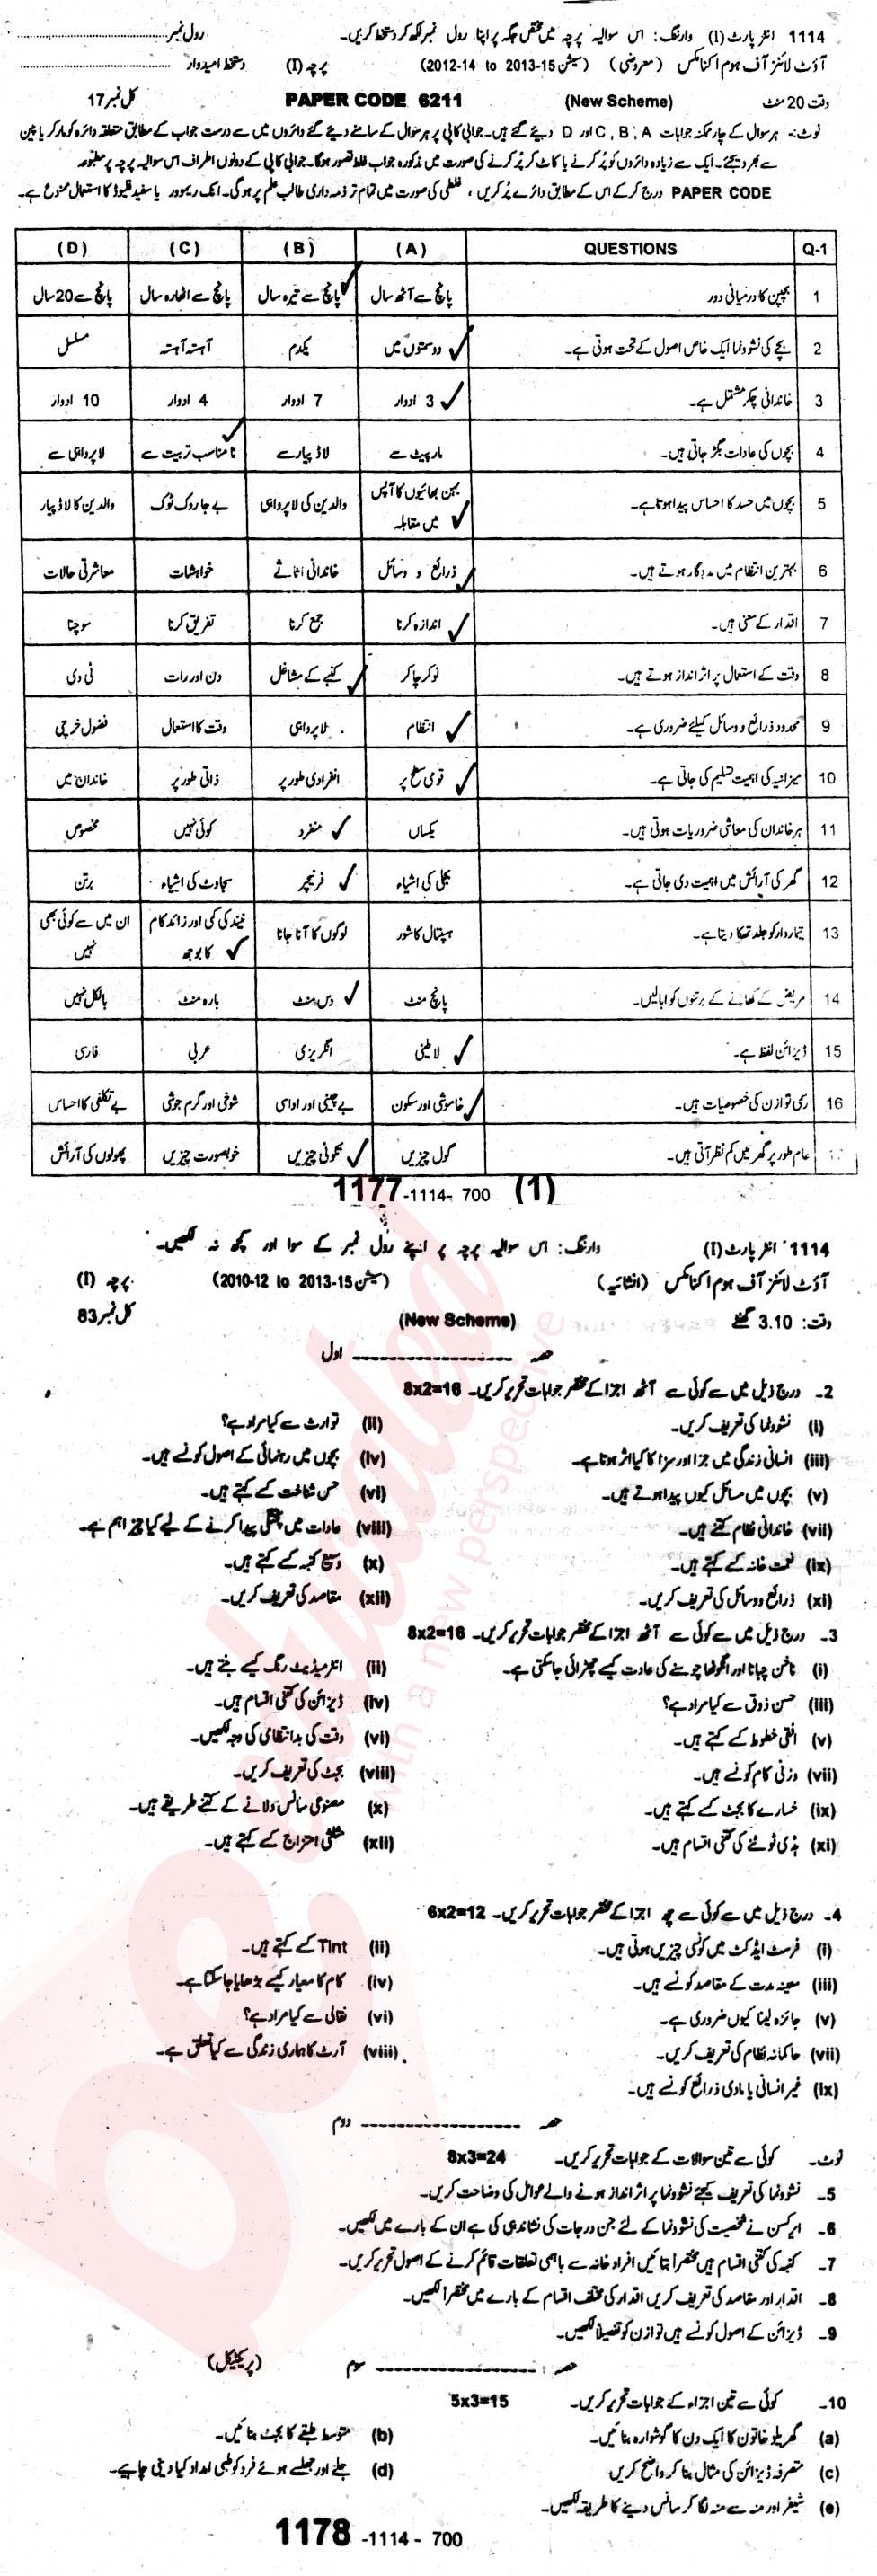 1114 انٹر پارٹ (I) وارننگ: اس سوالیہ پرچہ میں مختص جگہ پر اپنا رول نمبر لکھ کر دستخط کریں۔ رول نمبر
آؤٹ لائنز آف ہوم اکنامکس (معروضی) (سیشن 15-2013 to 2012-14) پرچہ (I) دستخط امیدوار
وقت 20 منٹ (New Scheme) PAPER CODE 6211 کل نمبر 17
نوٹ:- ہر سوال کے چار ممکنہ جوابات A, B, C اور D دیئے گئے ہیں۔ جوابی کاپی پر ہر سوال کے سامنے دیئے گئے دائروں میں سے درست جواب کے مطابق متعلقہ دائرہ کو مارکر یا پین
سے بھر دیجئے۔ ایک سے زیادہ دائروں کو پُر کرنے یا کاٹ کر پُر کرنے کی صورت میں مذکورہ جواب غلط تصور ہوگا۔ جوابی کاپی کے دونوں اطراف اس سوالیہ پرچہ پر مطبوعہ
PAPER CODE درج کر کے اس کے مطابق دائرے پُر کریں، غلطی کی صورت میں تمام تر ذمہ داری طالب علم پر ہوگی۔ انک ریموور یا سفید فلیوڈ کا استعمال ممنوع ہے۔
Q-1 QUESTIONS (A) (B) (C) (D)
1 بچپن کا درمیانی دور پانچ سے آٹھ سال پانچ سے تیرہ سال پانچ سے اٹھارہ سال پانچ سے 20 سال
2 بچے کی نشوونما ایک خاص اصول کے تحت ہوتی ہے۔ دو سمتوں میں یکدم آہستہ آہستہ مسلسل
3 خاندانی چکر مشتمل ہے۔ 3 ادوار 7 ادوار 4 ادوار 10 ادوار
4 بچوں کی عادات بگڑ جاتی ہیں۔ مارپیٹ سے لاڈ پیار سے نا مناسب تربیت سے لاپرواہی سے
5 بچوں میں حسد کا احساس پیدا ہوتا ہے۔ بہن بھائیوں کا آپس میں مقابلہ والدین کی لاپرواہی بے جا روک ٹوک والدین کا لاڈ پیار
6 بہترین انتظام میں مددگار ہوتے ہیں۔ ذرائع و وسائل خاندانی اثاثے خواہشات معاشرتی حالات
7 اقدار کے معنی ہیں۔ اندازہ کرنا جمع کرنا تفریق کرنا سوچنا
8 وقت کے استعمال پر اثر انداز ہوتے ہیں۔ نوکر چاکر کنبے کے مشاغل دن اور رات ٹی وی
9 محدود ذرائع و وسائل کیلئے ضروری ہے۔ انتظام لاپرواہی وقت کا استعمال فضول خرچی
10 میزانیہ کی اہمیت تسلیم کی جاتی ہے۔ قومی سطح پر انفرادی طور پر ذاتی طور پر خاندان میں
11 ہر خاندان کی معاشی ضروریات ہوتی ہیں۔ یکساں منفرد کوئی نہیں مخصوص
12 گھر کی آرائش میں اہمیت دی جاتی ہے۔ بجلی کی اشیاء فرنیچر سجاوٹ کی اشیاء برتن
13 تیماردار کو جلد تھکا دیتا ہے۔ ہسپتال کا شور لوگوں کا آنا جانا نیند کی کمی اور زائد کام کا بوجھ ان میں سے کوئی بھی نہیں
14 مریض کے کھانے کے برتنوں کو ابالیں۔ پانچ منٹ دس منٹ بارہ منٹ بالکل نہیں
15 ڈیزائن لفظ ہے۔ لاطینی انگریزی عربی فارسی
16 رسمی توازن کی خصوصیات ہیں۔ خاموشی اور سکون بے چینی اور اداسی شوخی اور گرم جوشی بے تکلفی کا احساس
عام طور پر گھر میں کم نظر آتی ہیں۔ گول چیزیں تکونی چیزیں خوبصورت چیزیں پھولوں کی آرائش
1177-1114- 700 (1)
1114 انٹر پارٹ (I) وارننگ: اس سوالیہ پرچہ پر اپنے رول نمبر کے سوا اور کچھ نہ لکھیں۔
آؤٹ لائنز آف ہوم اکنامکس (انشائیہ) (سیشن 15-2013 to 2010-12) پرچہ (I)
وقت: 3.10 گھنٹے (New Scheme) کل نمبر 83
حصہ اول
2- درج ذیل میں سے کوئی سے آٹھ اجزا کے مختصر جوابات تحریر کریں۔ 8x2=16
(i) نشوونما کی تعریف کریں۔ (ii) توارث سے کیا مراد ہے؟
(iii) انسانی زندگی میں جزا اور سزا کا کیا اثر ہوتا ہے۔ (iv) بچوں میں رہنمائی کے اصول کونسے ہیں۔
(v) بچوں میں مسائل کیوں پیدا ہوتے ہیں۔ (vi) حس شناخت کسے کہتے ہیں۔
(vii) خاندانی نظام کتنے ہیں۔ (viii) عادات میں پختگی پیدا کرنے کے لیے کیا چیز اہم ہے۔
(ix) نعمت خانہ کسے کہتے ہیں۔ (x) وسیع کنبہ کسے کہتے ہیں۔
(xi) ذرائع و وسائل کی تعریف کریں۔ (xii) مقاصد کی تعریف کریں۔
3- درج ذیل میں سے کوئی سے آٹھ اجزا کے مختصر جوابات تحریر کریں۔ 8x2=16
(i) ناخن چبانا اور انگوٹھا چوسنے کی عادت کیسے چھڑائی جا سکتی ہے۔ (ii) انٹرمیڈیٹ رنگ کیسے بنتے ہیں۔
(iii) حسن ذوق سے کیا مراد ہے؟ (iv) ڈیزائن کی کتنی اقسام ہیں۔
(v) افقی خطوط کسے کہتے ہیں۔ (vi) وقت کی بدانتظامی کی وجہ لکھیں۔
(vii) وزنی کام کونسے ہیں۔ (viii) بجٹ کی تعریف کریں۔
(ix) خسارے کا بجٹ کسے کہتے ہیں۔ (x) مصنوعی سانس دلانے کے کتنے طریقے ہیں۔
(xi) ہڈی ٹوٹنے کی کتنی اقسام ہیں۔ (xii) مثلثی امتزاج کسے کہتے ہیں۔
4- درج ذیل میں سے کوئی سے چھ اجزا کے مختصر جوابات تحریر کریں۔ 6x2=12
(i) فرسٹ ایڈ کٹ میں کونسی چیزیں ہوتی ہیں۔ (ii) Tint کسے کہتے ہیں۔
(iii) معینہ مدت کے مقاصد کونسے ہیں۔ (iv) کام کا معیار کیسے بڑھایا جا سکتا ہے۔
(v) جائزہ لینا کیوں ضروری ہے۔ (vi) نقالی سے کیا مراد ہے؟
(vii) حاکمانہ نظام کی تعریف کریں۔ (viii) آرٹ کا ہماری زندگی سے کیا تعلق ہے۔
(ix) غیر انسانی یا مادی ذرائع کونسے ہیں۔
حصہ دوم
نوٹ۔ کوئی سے تین سوالات کے جوابات تحریر کریں۔ 8x3=24
5- نشوونما کی تعریف کیجئے نشوونما پر اثر انداز ہونے والے عوامل کی وضاحت کریں۔
6- ایرکسن نے شخصیت کی نشوونما کے لئے جن درجات کی نشاندہی کی ہے ان کے بارے میں لکھیں۔
7- کنبہ کی کتنی اقسام ہیں مختصراً بتائیں افراد خانہ سے باہمی تعلقات قائم کرنے کے اصول تحریر کریں۔
8- اقدار اور مقاصد کی تعریف کریں اقدار کی مختلف اقسام کے بارے میں مختصراً لکھیں۔
9- ڈیزائن کے اصول کونسے ہیں توازن کو تفصیلاً لکھیں۔
حصہ سوم (پریکٹیکل)
10- کوئی سے تین اجزاء کے جوابات تحریر کریں۔ 5x3=15
(a) گھریلو خاتون کا ایک دن کا گوشوارہ بنائیں۔ (b) متوسط طبقے کا بجٹ بنائیں۔
(c) متصرفہ ڈیزائن کی مثال بنا کر واضح کریں (d) جلے اور جھلسے ہوئے فرد کو طبی امداد کیا دینی چاہیے۔
(e) شیفر اور منہ سے منہ لگا کر سانس دینے کا طریقہ لکھیں۔
1178 -1114 - 700
beeducated
with a new perspective